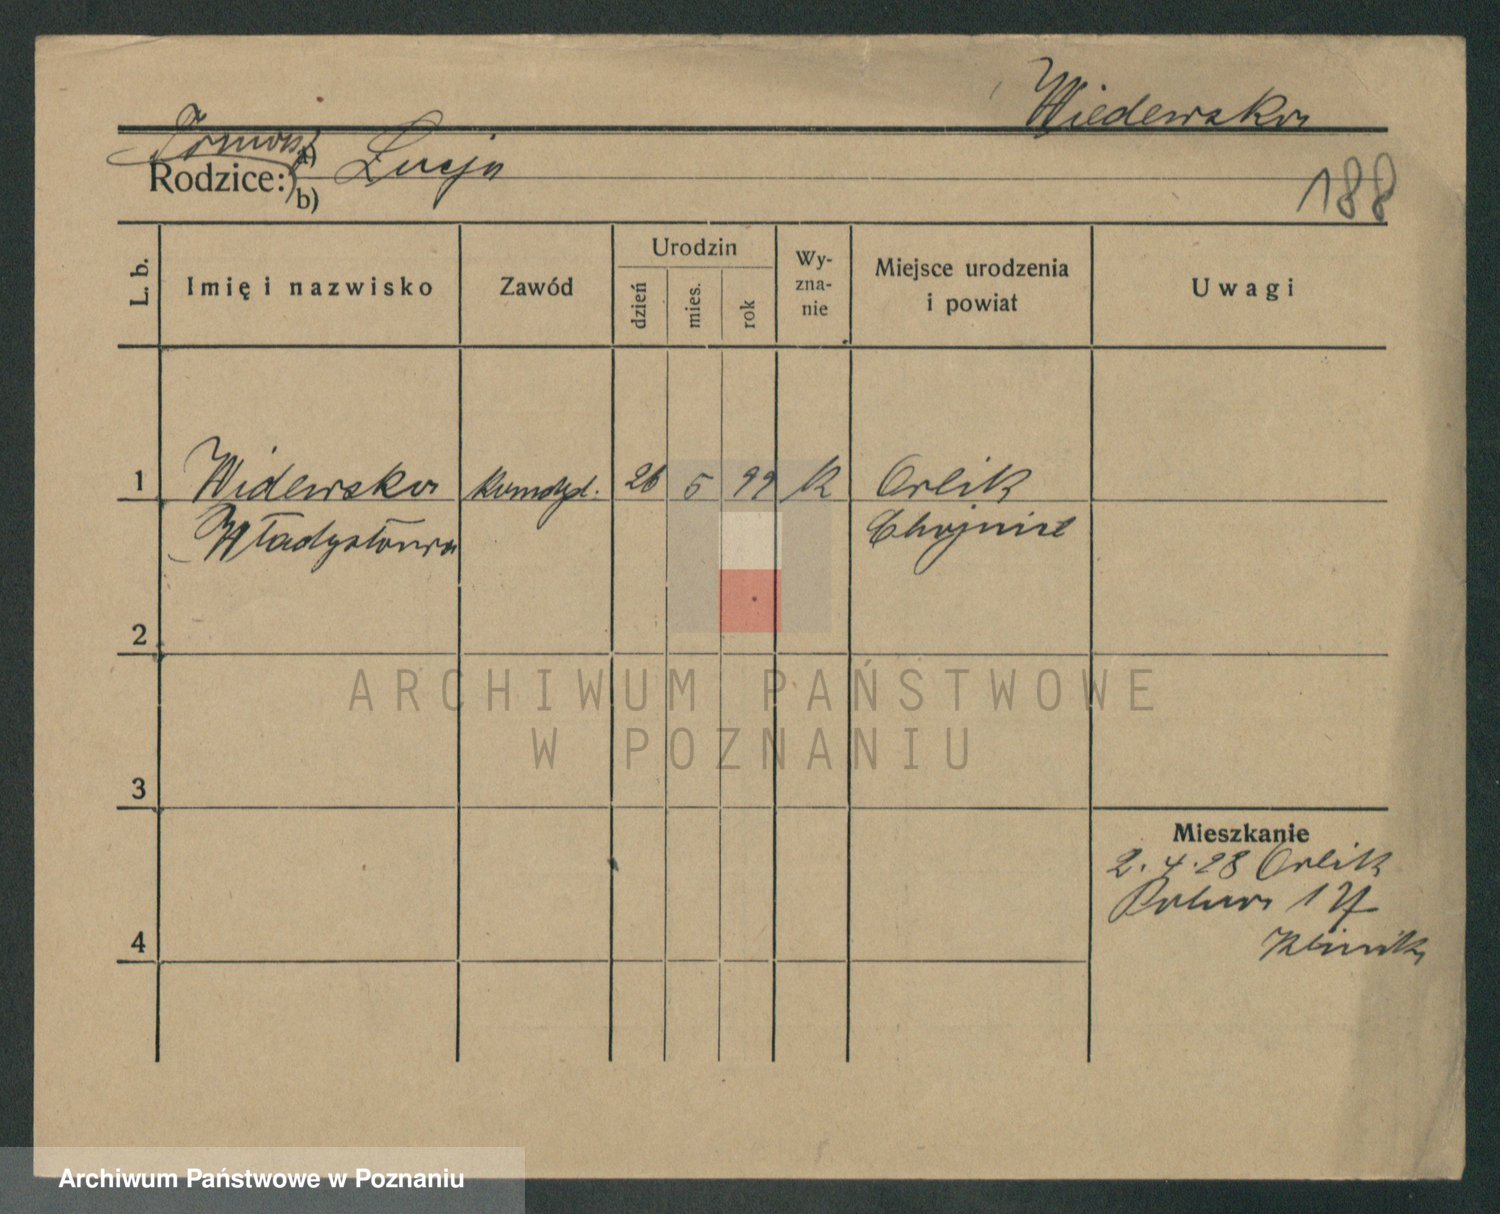 Wiedewska
Tomasz
Rodzice: a) Łucja
b)
188
L. b.
Imię i nazwisko
Zawód
Urodzin
dzień
mies.
rok
Wy-
zna-
nie
Miejsce urodzenia
i powiat
Uwagi
1 Widewska 26 5 99 k Orlik
Władysława Chojnice
2
ARCHIWUM PAŃSTWOWE
W POZNANIU
3
Mieszkanie
2. 4. 28 Orlik
Polna 17
4
Archiwum Państwowe w Poznaniu